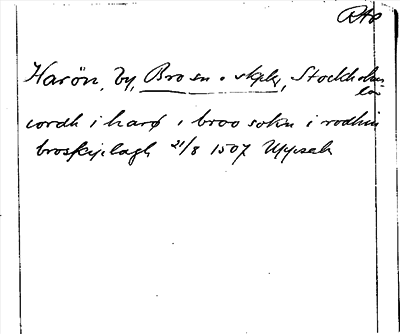 RAp
Harön, by, Bro sn o skply, Stockholms
län
i harø i broo sokn i rodhin
broskiplagh 21/8 1507 Uppsala